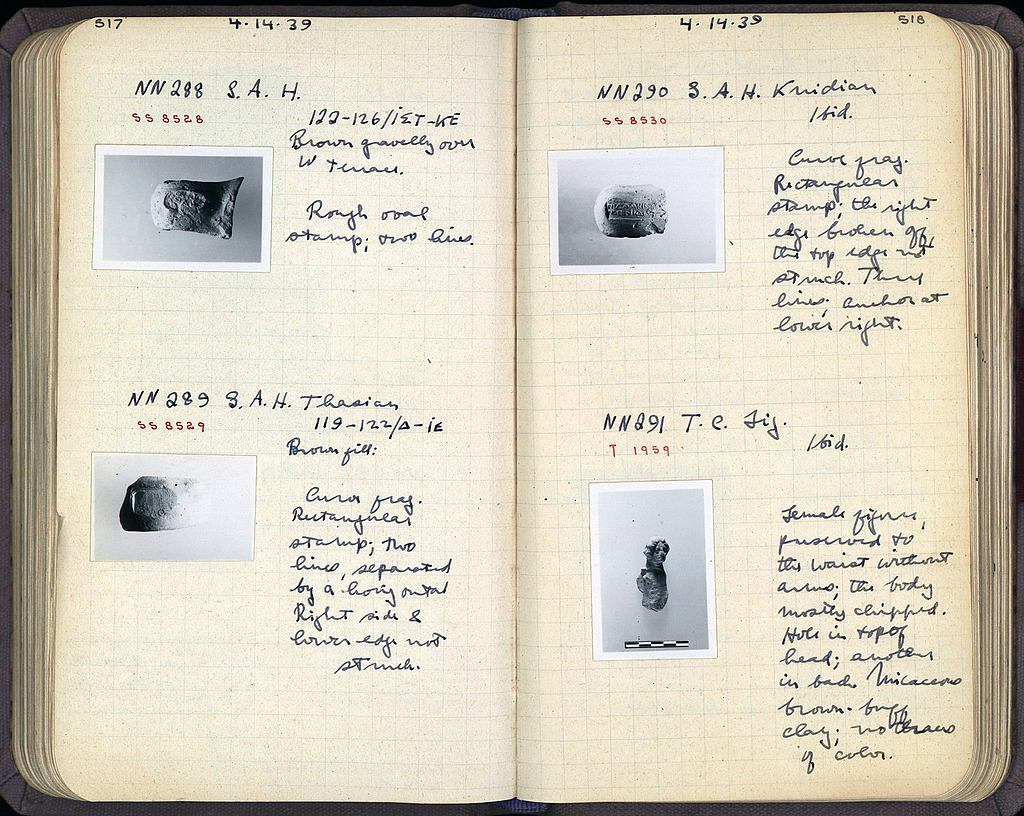 517
4·14·39
NN288 S. A. H.
SS 8528
122-126/ΙΣΤ-ΚΕ
Brown gravelly over
W Terrace.
Rough oval
stamp; two lines.
NN289 S. A. H. Thasian
SS 8529
119-122/Δ-ΙΕ
Brown fill:
Curve frag.
Rectangular
stamp; two
lines, separated
by a horizontal
Right side &
lower edge not
struck.
4·14·39
518
NN290 S. A. H. Knidian
SS 8530
Ibid.
Curve frag.
Rectangular
stamp; the right
edge broken off,
the top edge not
struck. Three
lines; anchor at
lower right.
NN291 T. C. Fig.
T 1959
Ibid.
Female figure,
preserved to
the waist without
arms; the body
mostly chipped.
Hole in top of
head; another
in back. Micaceous
brown-buff
clay; no traces
of color.